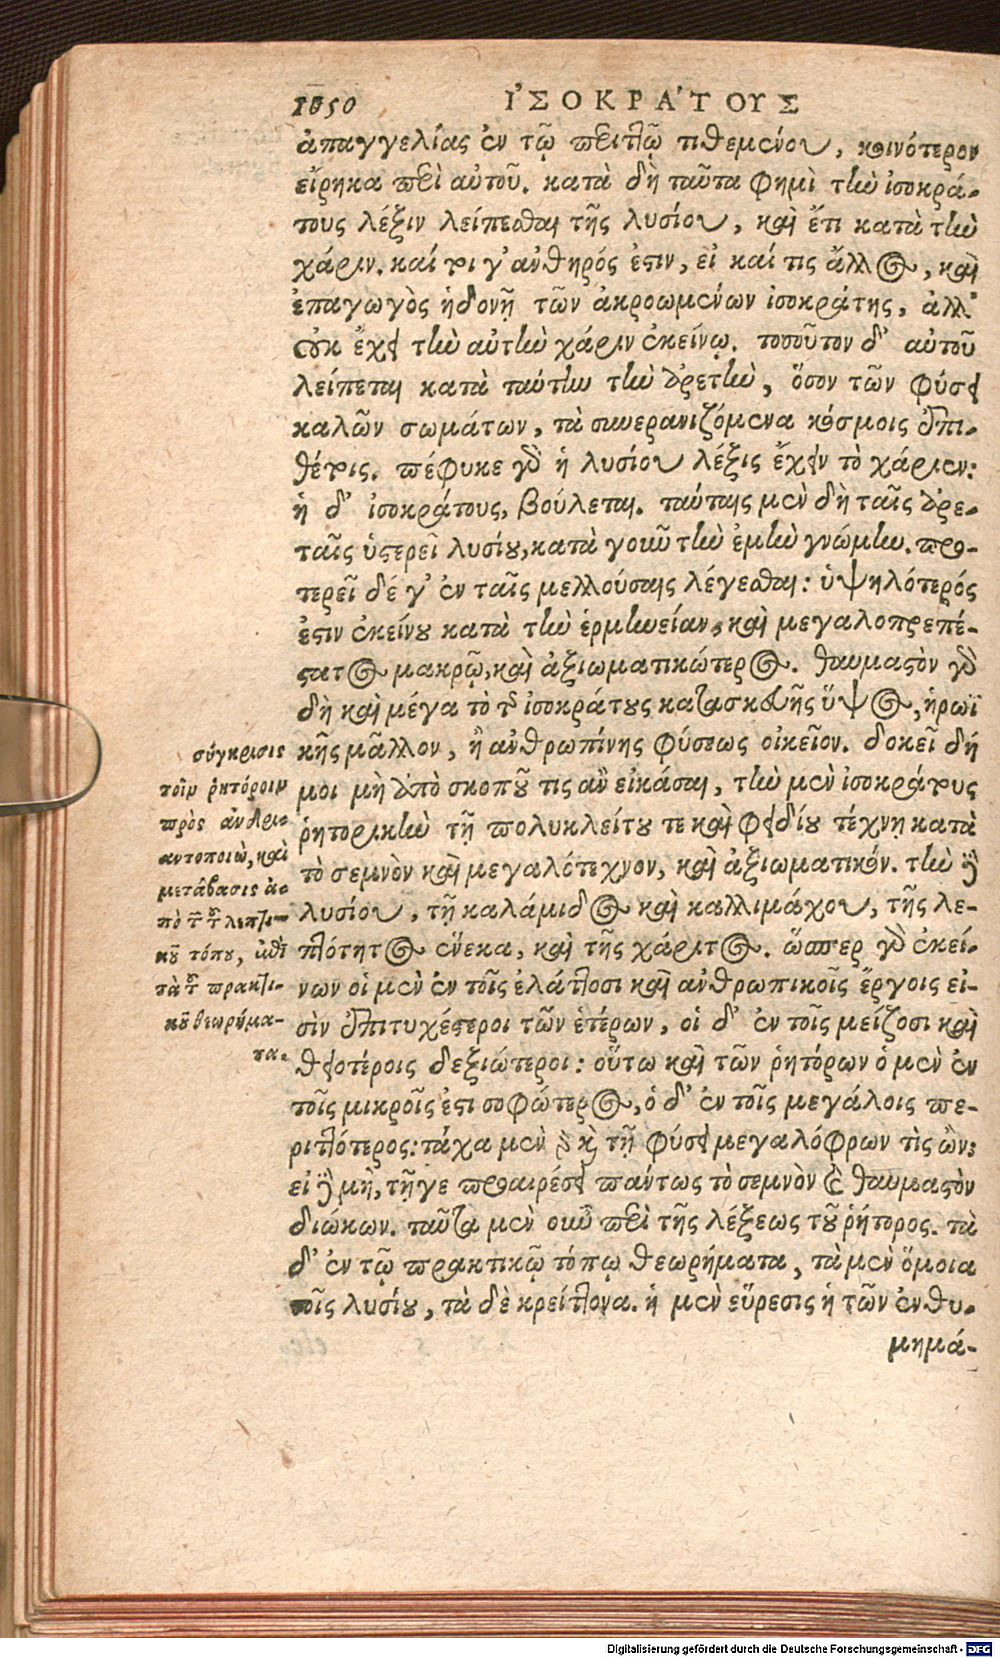 1050 ἸΣΟΚΡΑ'ΤΟΥΣ
ἀπαγγελίας ἐν τῷ περιττῷ τιθεμένου, καινότερον
εἴρηκα περὶ αὐτοῦ. κατὰ δὴ ταῦτα φημὶ τὴν ἰσοκρά-
τους λέξιν λείπεσθαι τῆς λυσίου, καὶ ἔτι κατὰ τὴν
χάριν. καί τοι γ' ἀνθηρός ἐστιν, εἰ καί τις ἄλλος, καὶ
ἐπαγωγὸς ἡδονῇ τῶν ἀκροωμένων ἰσοκράτης, ἀλλ'
οὐκ ἔχει τὴν αὐτὴν χάριν ἐκείνῳ. τοσοῦτον δ' αὐτοῦ
λείπεται κατὰ ταύτην τὴν ἀρετὴν, ὅσον τῶν φύσει
καλῶν σωμάτων, τὰ συνερανιζόμενα κόσμοις ἐπι-
θέτοις. πέφυκε γὰρ ἡ λυσίου λέξις ἔχειν τὸ χάριεν:
ἡ δ' ἰσοκράτους, βούλεται. ταύταις μὲν δὴ ταῖς ἀρε-
ταῖς ὑστερεῖ λυσίου, κατὰ γοῦν τὴν ἐμὴν γνώμην. προ-
τερεῖ δέ γ' ἐν ταῖς μελλούσαις λέγεσθαι: ὑψηλότερός
ἐστιν ἐκείνου κατὰ τὴν ἑρμηνείαν, καὶ μεγαλοπρεπέ-
στατος μακρῷ, καὶ ἀξιωματικώτερος. θαυμαστὸν γὰρ
δὴ καὶ μέγα τὸ τῆς ἰσοκράτους κατασκευῆς ὕψος, ἡρωϊ
κῆς μᾶλλον, ἢ ἀνθρωπίνης φύσεως οἰκεῖον. δοκεῖ δή
μοι μὴ ἀπὸ σκοποῦ τις ἂν εἰκάσαι, τὴν μὲν ἰσοκράτους
ῥητορικὴν τῇ πολυκλείτου τε καὶ φειδίου τέχνῃ κατὰ
τὸ σεμνὸν καὶ μεγαλότεχνον, καὶ ἀξιωματικόν. τὴν δὲ
λυσίου, τῇ καλάμιδος καὶ καλλιμάχου, τῆς λε-
πτότητος ἕνεκα, καὶ τῆς χάριτος. ὥσπερ γὰρ ἐκεί-
νων οἱ μὲν ἐν τοῖς ἐλάττοσι καὶ ἀνθρωπικοῖς ἔργοις εἰ-
σὶν ἐπιτυχέστεροι τῶν ἑτέρων, οἱ δ' ἐν τοῖς μείζοσι καὶ
θειοτέροις δεξιώτεροι: οὕτω καὶ τῶν ῥητόρων ὁ μὲν ἐν
τοῖς μικροῖς ἐστι σοφώτερος, ὁ δ' ἐν τοῖς μεγάλοις πε-
ριττότερος: τάχα μὲν γὰρ καὶ τῇ φύσει μεγαλόφρων τὶς ὢν:
εἰ δὲ μὴ, τῇ γε προαιρέσει πάντως τὸ σεμνὸν καὶ θαυμαστὸν
διώκων. ταῦτα μὲν οὖν περὶ τῆς λέξεως τοῦ ῥήτορος. τὰ
δ' ἐν τῷ πρακτικῷ τόπῳ θεωρήματα, τὰ μὲν ὅμοια
τοῖς λυσίου, τὰ δὲ κρείττονα. ἡ μὲν εὕρεσις ἡ τῶν ἐνθυ-
μημά-
σύγκρισις
τοῖν ῥητόροιν
πρὸς ἀνδρι-
αντοποιὼ, καὶ
μετάβασις ἀ-
πὸ τοῦ τῆς λεκτι-
κοῦ τόπου, ἐπὶ
τὰ τοῦ πρακτι-
κοῦ θεωρήμα-
τα.
Digitalisierung gefördert durch die Deutsche Forschungsgemeinschaft - DFG